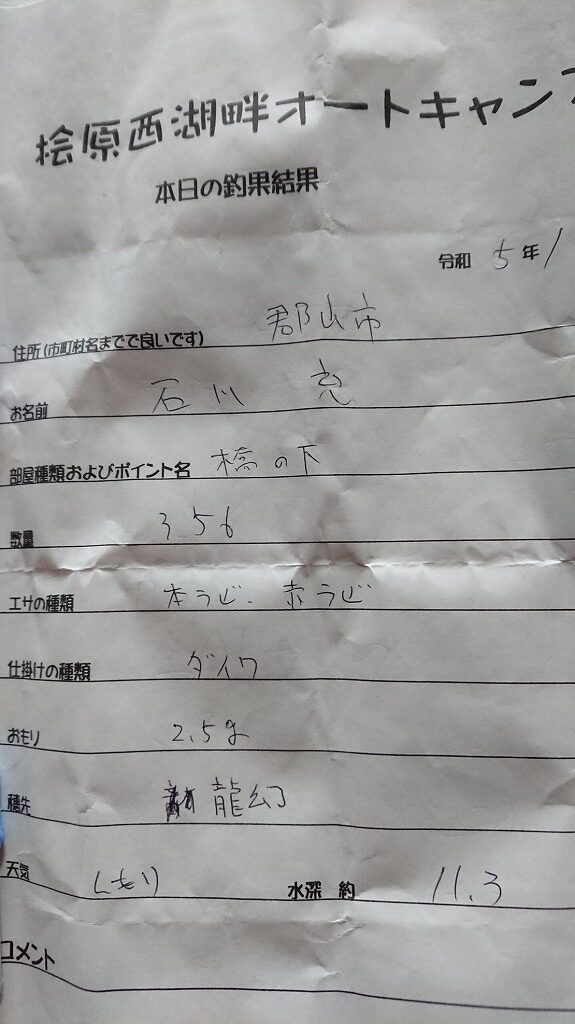 桧原西湖畔オートキャンプ
本日の釣果結果
令和 5年1
住所(市町村名までで良いです) 郡山市
お名前 石川 充
部屋種類およびポイント名 橋の下
数量 356
エサの種類 本ラビ、赤ラビ
仕掛けの種類 ダイワ
おもり 2.5g
穂先 龍幻
天気 くもり 水深 約 11.3
コメント